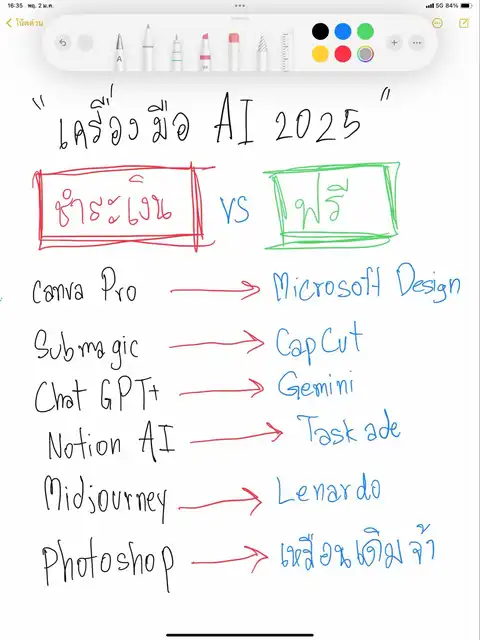 16:35 พฤ. 2 ม.ค.
5G 84%
โน้ตด่วน
"เครื่องมือ AI 2025"
ชำระเงิน VS ฟรี
Canva Pro → Microsoft Design
Submagic → CapCut
Chat GPT+ → Gemini
Notion AI → Taskade
Midjourney → Lenardo
Photoshop → เหมือนเดิมจ้า